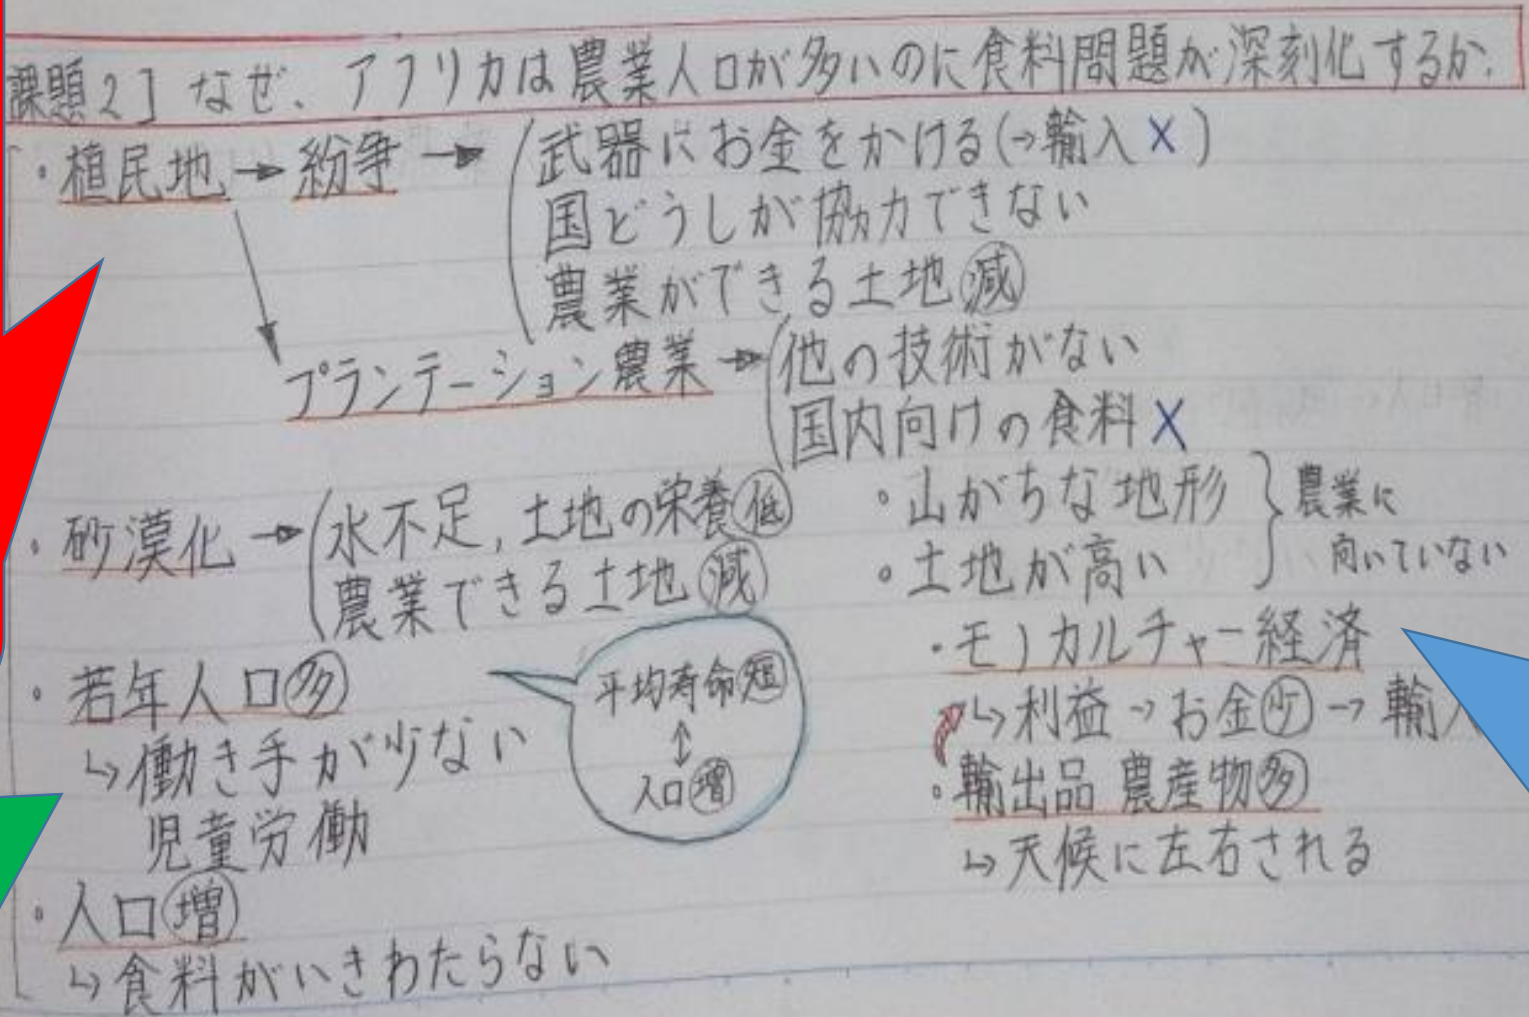 課題2] なぜ、アフリカは農業人口が多いのに食料問題が深刻化するか.
・植民地→紛争→(武器にお金をかける(→輸入×)
国どうしが協力できない
農業ができる土地減
プランテーション農業→(他の技術がない
国内向けの食料×
・砂漠化→(水不足,土地の栄養低
農業できる土地減
・若年人口多
↳働き手が少ない
児童労働
平均寿命短
↕
人口増
・人口増
↳食料がいきわたらない
・山がちな地形
・土地が高い
}農業に
向いていない
・モノカルチャー経済
↳利益→お金少→輸入
・輸出品 農産物多
↳天候に左右される